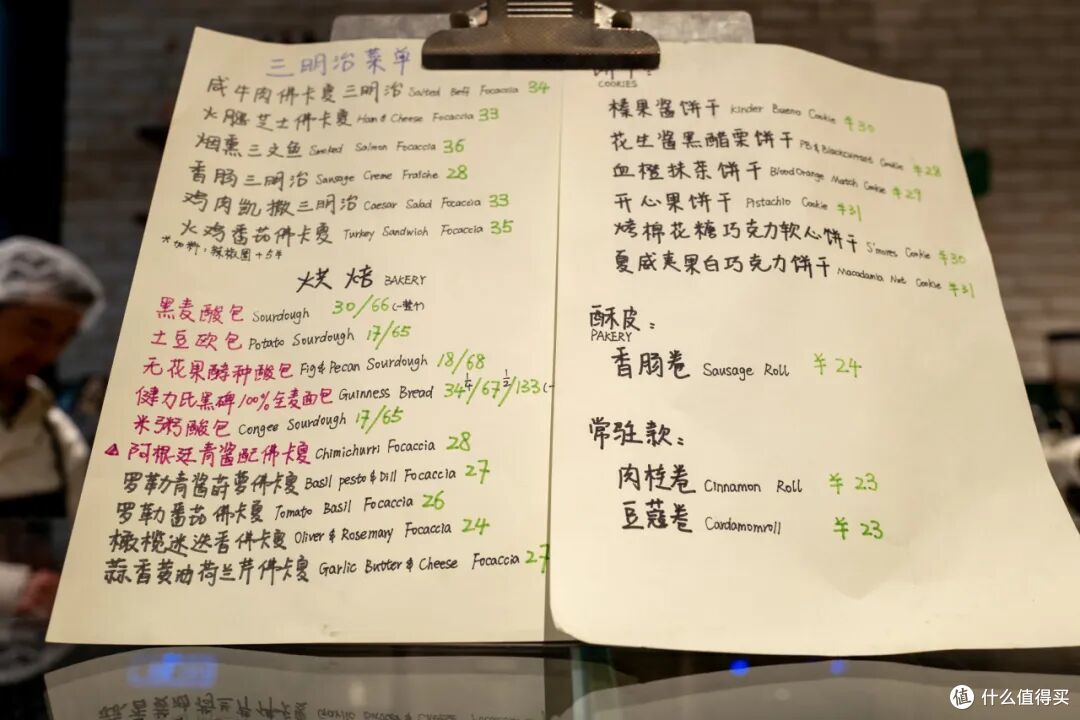 三明治菜单
咸牛肉佛卡夏三明治 Salted Beff Focaccia 34
火腿芝士佛卡夏 Han & Cheese Focaccia 33
烟熏三文鱼 Smoked Salmon Focaccia 36
香肠三明治 Sausage Creme Fraîche 28
鸡肉凯撒三明治 Caesar Salad Focaccia 33
火鸡番茄佛卡夏 Turkey Sandwich Focaccia 35
*加料:辣椒圈+5¥
烘焙 BAKERY
黑麦酸包 Sourdough 30/66(一整个)
土豆欧包 Potato Sourdough 17/65
无花果酵种酸包 Fig & Pecan Sourdough 18/68
健力氏黑啤100%全麦面包 Guinness Bread 34 1/4/67 1/2/133(一
米粥酸包 Congee Sourdough 17/65
阿根廷青酱配佛卡夏 Chimichurri Focaccia 28
罗勒青酱莳萝佛卡夏 Basil pesto & Dill Focaccia 27
罗勒番茄佛卡夏 Tomato Basil Focaccia 26
橄榄迷迭香佛卡夏 Oliver & Rosemary Focaccia 24
蒜香黄油荷兰芹佛卡夏 Garlic Butter & Cheese Focaccia 27
COOKIES
榛果酱饼干 Kinder Bueno Cookie ¥30
花生酱黑醋栗饼干 PB & Blackcurrant Cookie ¥28
血橙抹茶饼干 Blood Orange Match Cookie ¥29
开心果饼干 Pistachio Cookie ¥31
烤棉花糖巧克力软心饼干 S'mores Cookie ¥30
夏威夷果白巧克力饼干 Macadamia Nut Cookie ¥31
酥皮:
PAKERY
香肠卷 Sausage Roll ¥24
常驻款:
肉桂卷 Cinnamon Roll ¥23
豆蔻卷 Cardamomroll ¥23
值 什么值得买